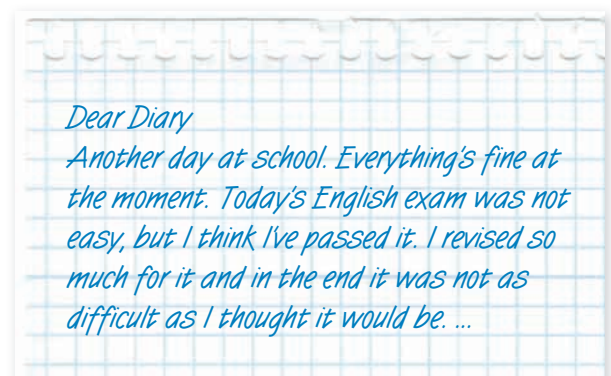 Dear Diary
Another day at school. Everything's fine at
the moment. Today's English exam was not
easy, but I think I've passed it. I revised so
much for it and in the end it was not as
difficult as I thought it would be. ...